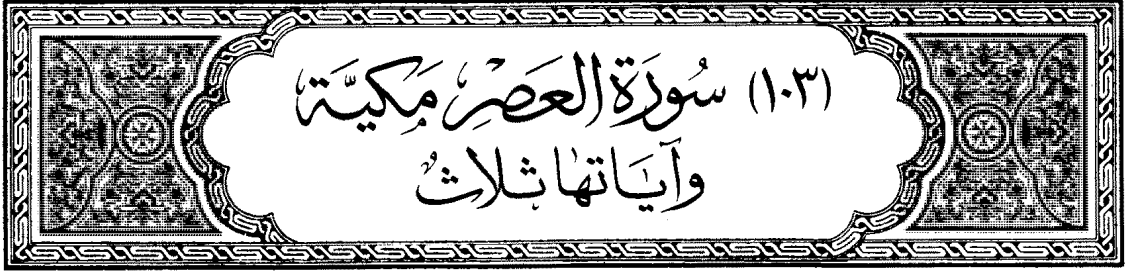 (١٠٣) سُورَةُ العَصْرِ مَكيَّة
وَآيَاتهَا ثلاثٌ